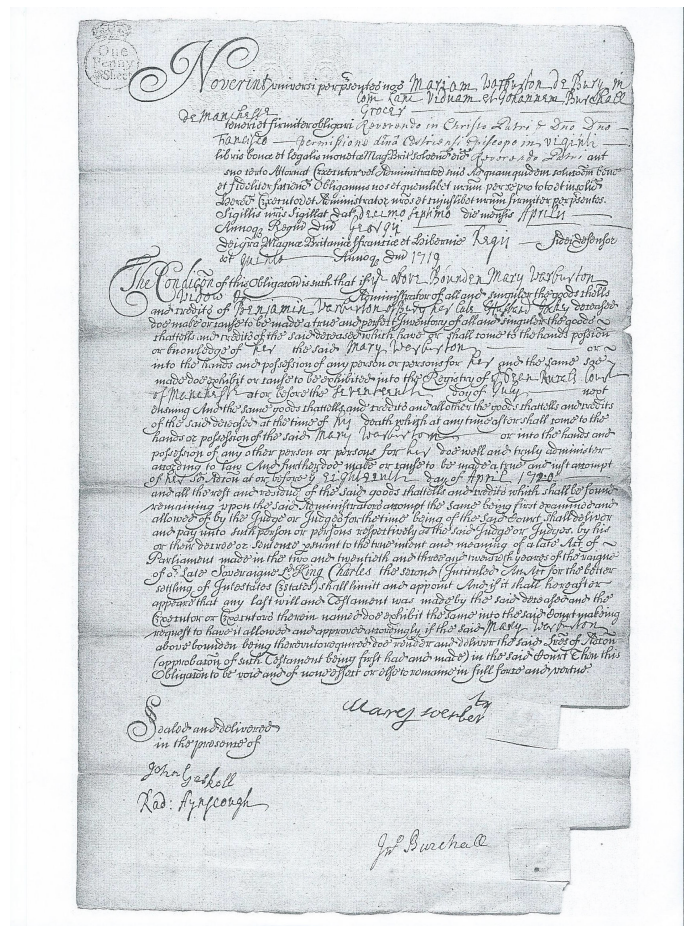 One
Penny
Shee
Noverint universi per p̄sentes nos Mariam Warburton de Bury in
Com Lanc Viduam et Johannem Burchall
de Manchest Grocer
teneri et firmiter obligari Reverendo in Christo Patri & Dno Dno
Francisco permissione divina Cestriensi Episcopo in viginti
libris bonæ et legalis monetæ Mag Brit solvend eid Reverendo Patri aut
suo certo Attornat Executor vel Administrator suis Ad quam quidem soluc̄on bene
et fidelit faciend Obligamus nos et quemlibet nr̄um per se pro toto et insolid
Hered Executor et Administrator nr̄os et cujuslibet nr̄um firmiter per p̄sentes
Sigillis nr̄is Sigillat dat decimo septimo die mensis Aprilis
Annoq Regni Dni Georgij
dei gra Magnæ Britaniæ ffranciæ et Hiberniæ Regis fidei defensor
&c Quinto Annoq Dni 1719
The Condic̄on of this Obligac̄on is such that if yᵉ above Bounden Mary Warburton
Widow Administrator of all and singuler the goods chattells
and credits of Benjamin Warburton of Bury her late Husband dyer deceased
doe make or cause to be made a true and perfect Inventory of all and singuler the goods
chattells and credits of the said deceased which have or shall come to the hands possion
or knowledge of her the said Mary Warburton or
into the hands and possession of any person or persons for her and the same soe
made doe exhibit or cause to be exhibited into the Registry of yᵉ Dean Rurels Court
of Manchestr at or before the Seventeenth day of July next
ensuing And the same goods chattells and credits and all other the goods chattells and credits
of the said deceased at the time of his death which at any time after shall come to the
hands or possession of the said Mary Warburton or into the hands and
possession of any other person or persons for her doe well and truly administer
according to Law And further doe make or cause to be made a true and just accompt
of her sd Ac̄con at or before yᵉ Eighteenth day of April 1720
and all the rest and residue of the said goods chattells and credits which shall be found
remaining upon the said Administrators accompt the same being first examined and
allowed of by the Judge or Judges for the time being of the said Court shall deliver
and pay unto such person or persons respectively as the said Judge or Judges by his
or their decree or Sentence p̄suant to the true intent and meaning of a Late Act of
Parliament made in the two and twentieth and three and twentieth yeares of the raigne
of oʳ Late Soveraigne Ld King Charles the second (Intituled An Act for the better
settling of Intestates Estates) shall limitt and appoint And if it shall hereafter
appeare that any last will and Testament was made by the said deceased and the
Executor or Executors therein named doe exhibit the same into the said Court making
request to have it allowed and approved accordingly if the said Mary Warburton
above bounden being thereunto required doe render and deliver the said Lres of Ac̄con
(approbac̄on of such Testament being first had and made) in the said Court Then this
Obligac̄on to be void and of none effect or else to remaine in full force and vertue
Mary werber
tn
Sealed and delivered
in the presence of
John Gaskell
Rad: Aynscough
Jnᵒ Burchall